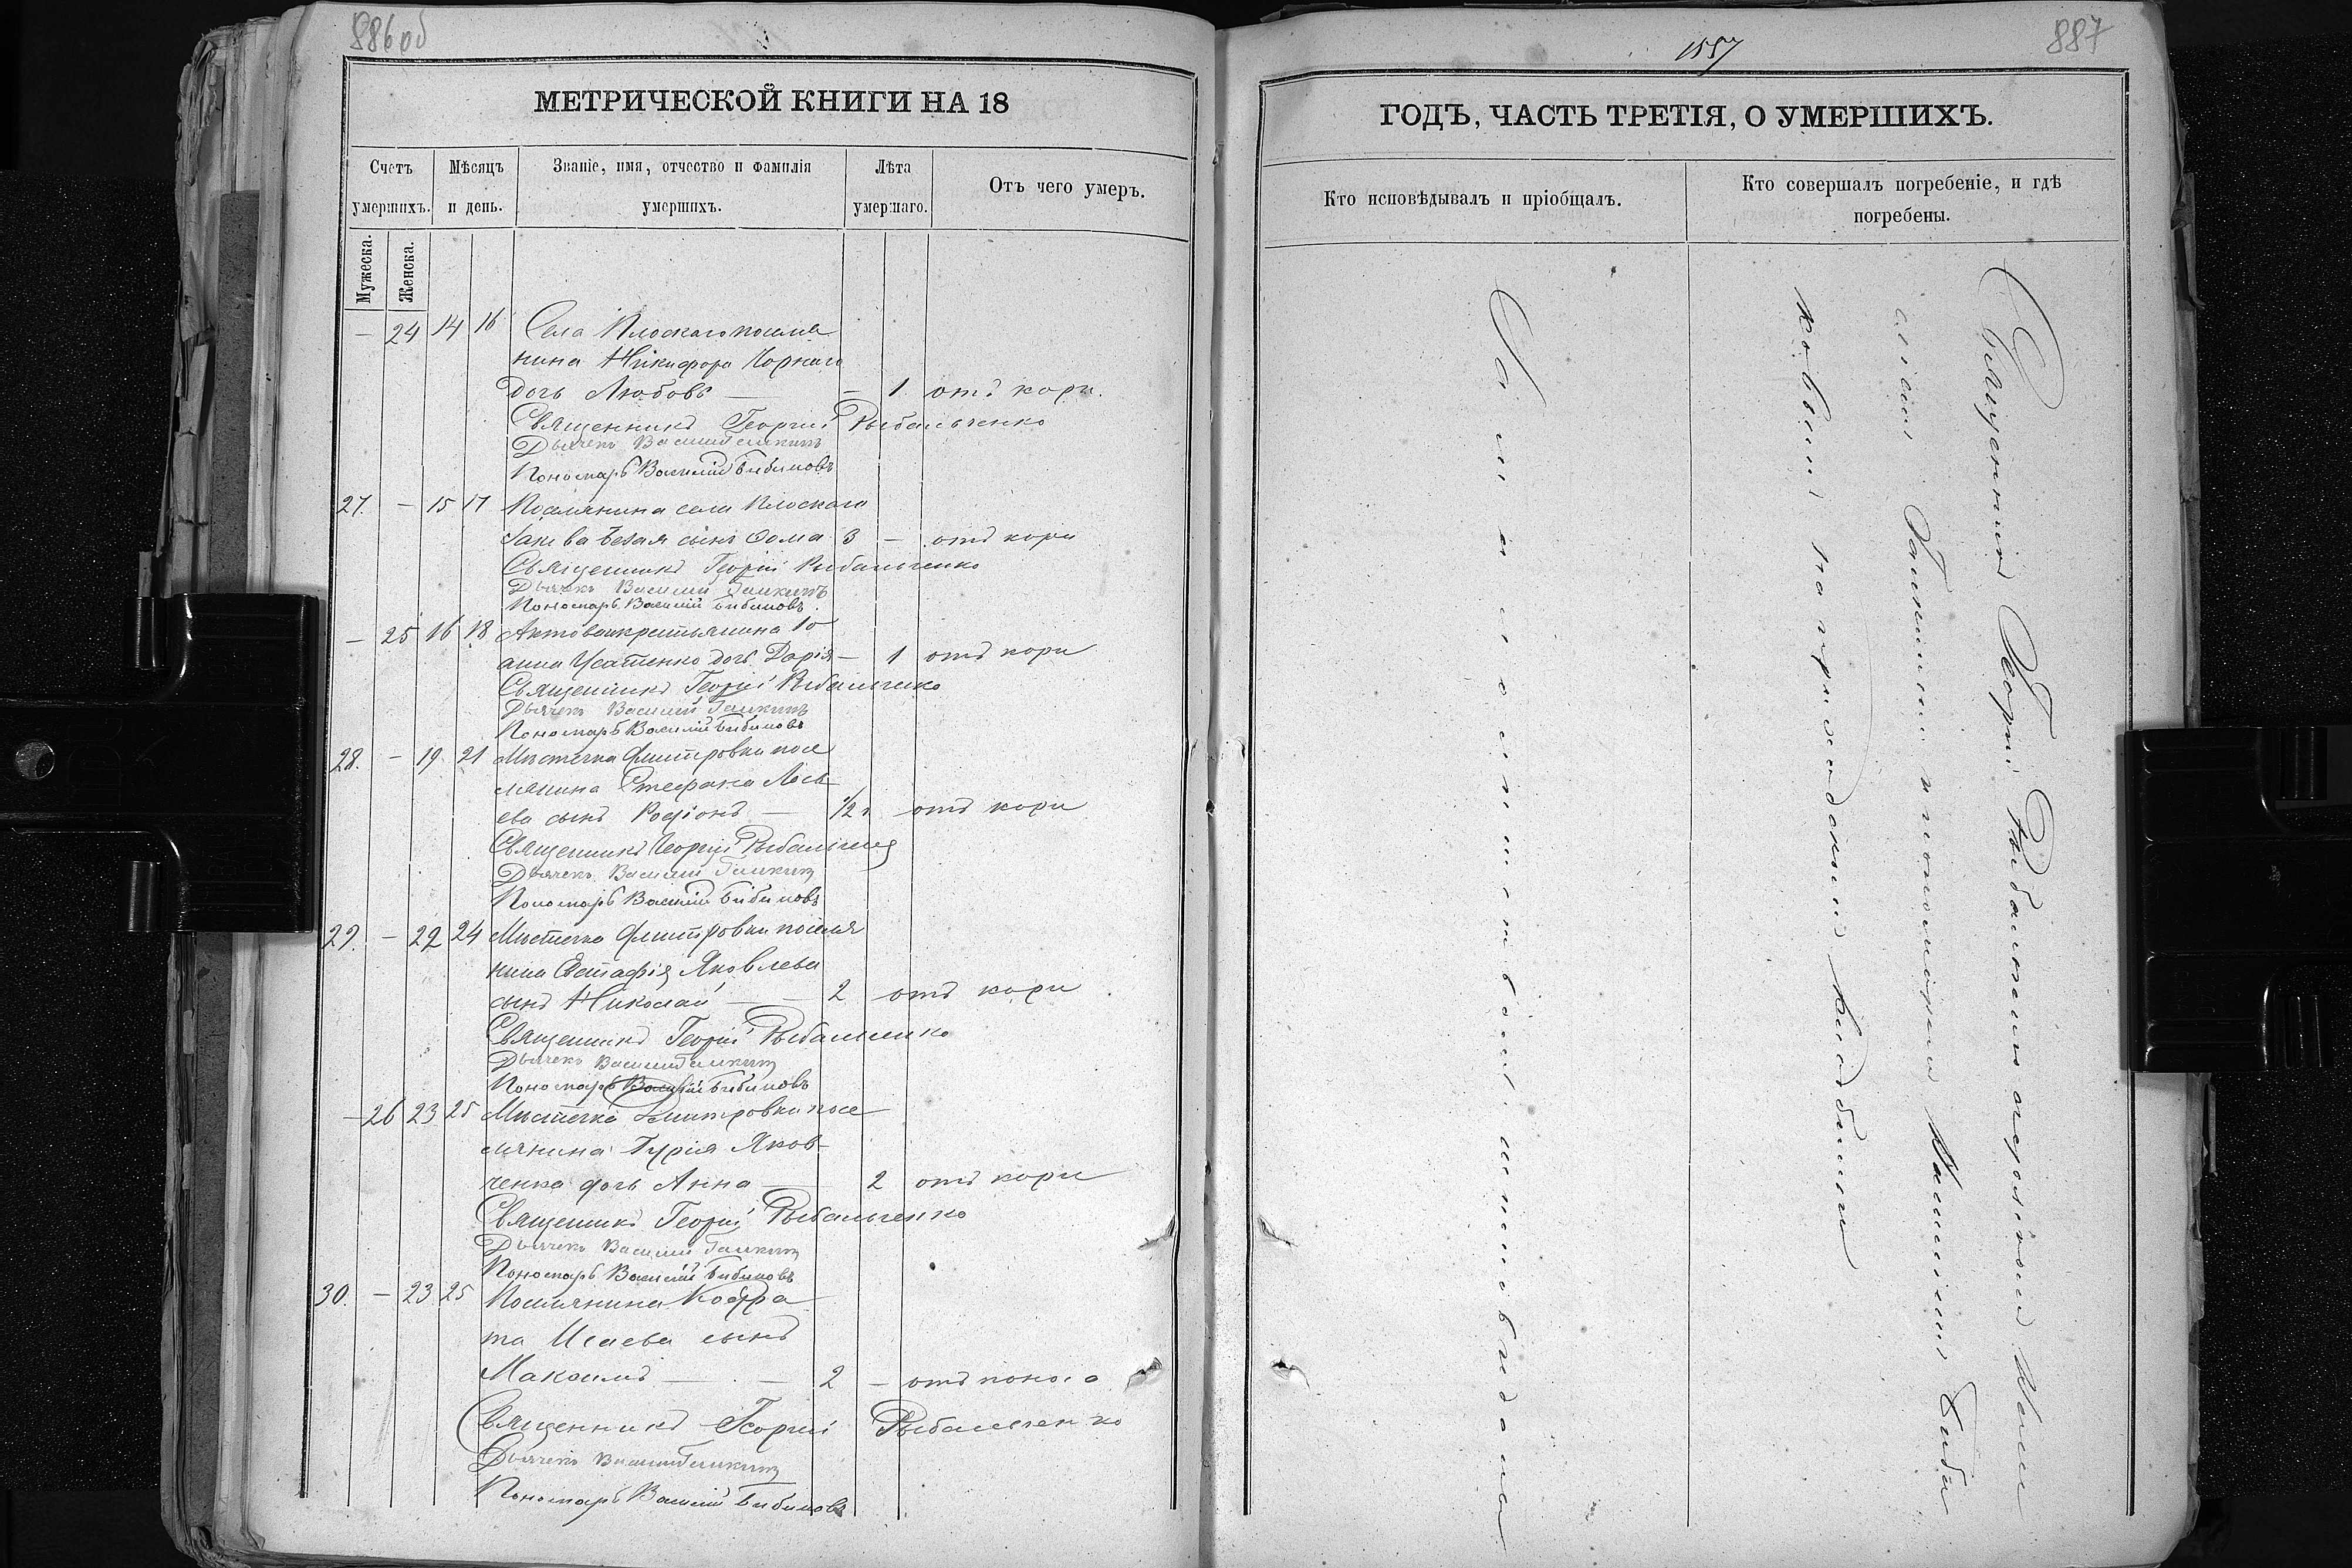 886об
МЕТРИЧЕСКОЙ КНИГИ НА 18
Счетъ умершихъ.
Мѣсяцъ и день.
Званіе, имя, отчество и фамилія умершихъ.
Лѣта умершаго.
Отъ чего умеръ.
Мужеска.
Женска.
— 24 14 16 Села Плоскаго поселя
нина Никифора Чорнаго
дочь Любовь — — 1 отъ кори.
Священникъ Георгій Рыбальченко
Дьячекъ Василий Галкинъ
Пономарь Василій Бибиковъ
27. — 15 17 Поселянина села Плоскаго
сынъ Фома 3 — отъ кори
Священникъ Георгій Рыбальченко
Дьячекъ Василий Галкинъ
Пономарь Василій Бибиковъ.
— 25 16 18 Актова крестьянина Іо
анна Усатенко дочь Дарія — 1 отъ кори
Священникъ Георгій Рыбальченко
Дьячекъ Василий Галкинъ
Пономарь Василій Бибиковъ
28. — 19 21 Мѣстечка Дмитровки посе
лянина Стефана
ева сынъ Родіонъ — 1/2 г. отъ кори
Священникъ Георгій Рыбальченко
Дьячекъ Василий Галкинъ
Пономарь Василій Бибиковъ
29. — 22 24 Мѣстечка Дмитровки поселя
нина Евстафія Яковлева
сынъ Николай — — 2 отъ кори
Священникъ Георгій Рыбальченко
Дьячекъ Василий Галкинъ
Пономарь Василій Бибиковъ
— 26 23 25 Мѣстечка Дмитровки посе
лянина Гурія Яков
ченка дочь Анна — 2 отъ кори
Священникъ Георгій Рыбальченко
Дьячекъ Василий Галкинъ
Пономарь Василій Бибиковъ
30. — 23 25 Поселянина Кодра
та Исаева сынъ
Максимъ — — 2 — отъ поноса
Священникъ Георгій Рыбальченко
Дьячекъ Василий Галкинъ
Пономарь Василій Бибиковъ
1887
887
ГОДЪ, ЧАСТЬ ТРЕТІЯ, О УМЕРШИХЪ.
Кто исповѣдывалъ и пріобщалъ.
Кто совершалъ погребеніе, и гдѣ погребены.
За малолетствомъ не исповеданы
Священникъ Георгій Рыбальченко съ дьячкомъ Васи
лиемъ Галкинымъ и пономаремъ Василіемъ Биби
ковымъ на приходскомъ кладбище